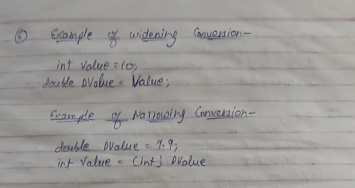 ⑤ Example of widening Conversion-
int Value = 10;
double DValue = Value;
Example of Narrowing Conversion-
double DValue = 9.9;
int Value = (int) DValue